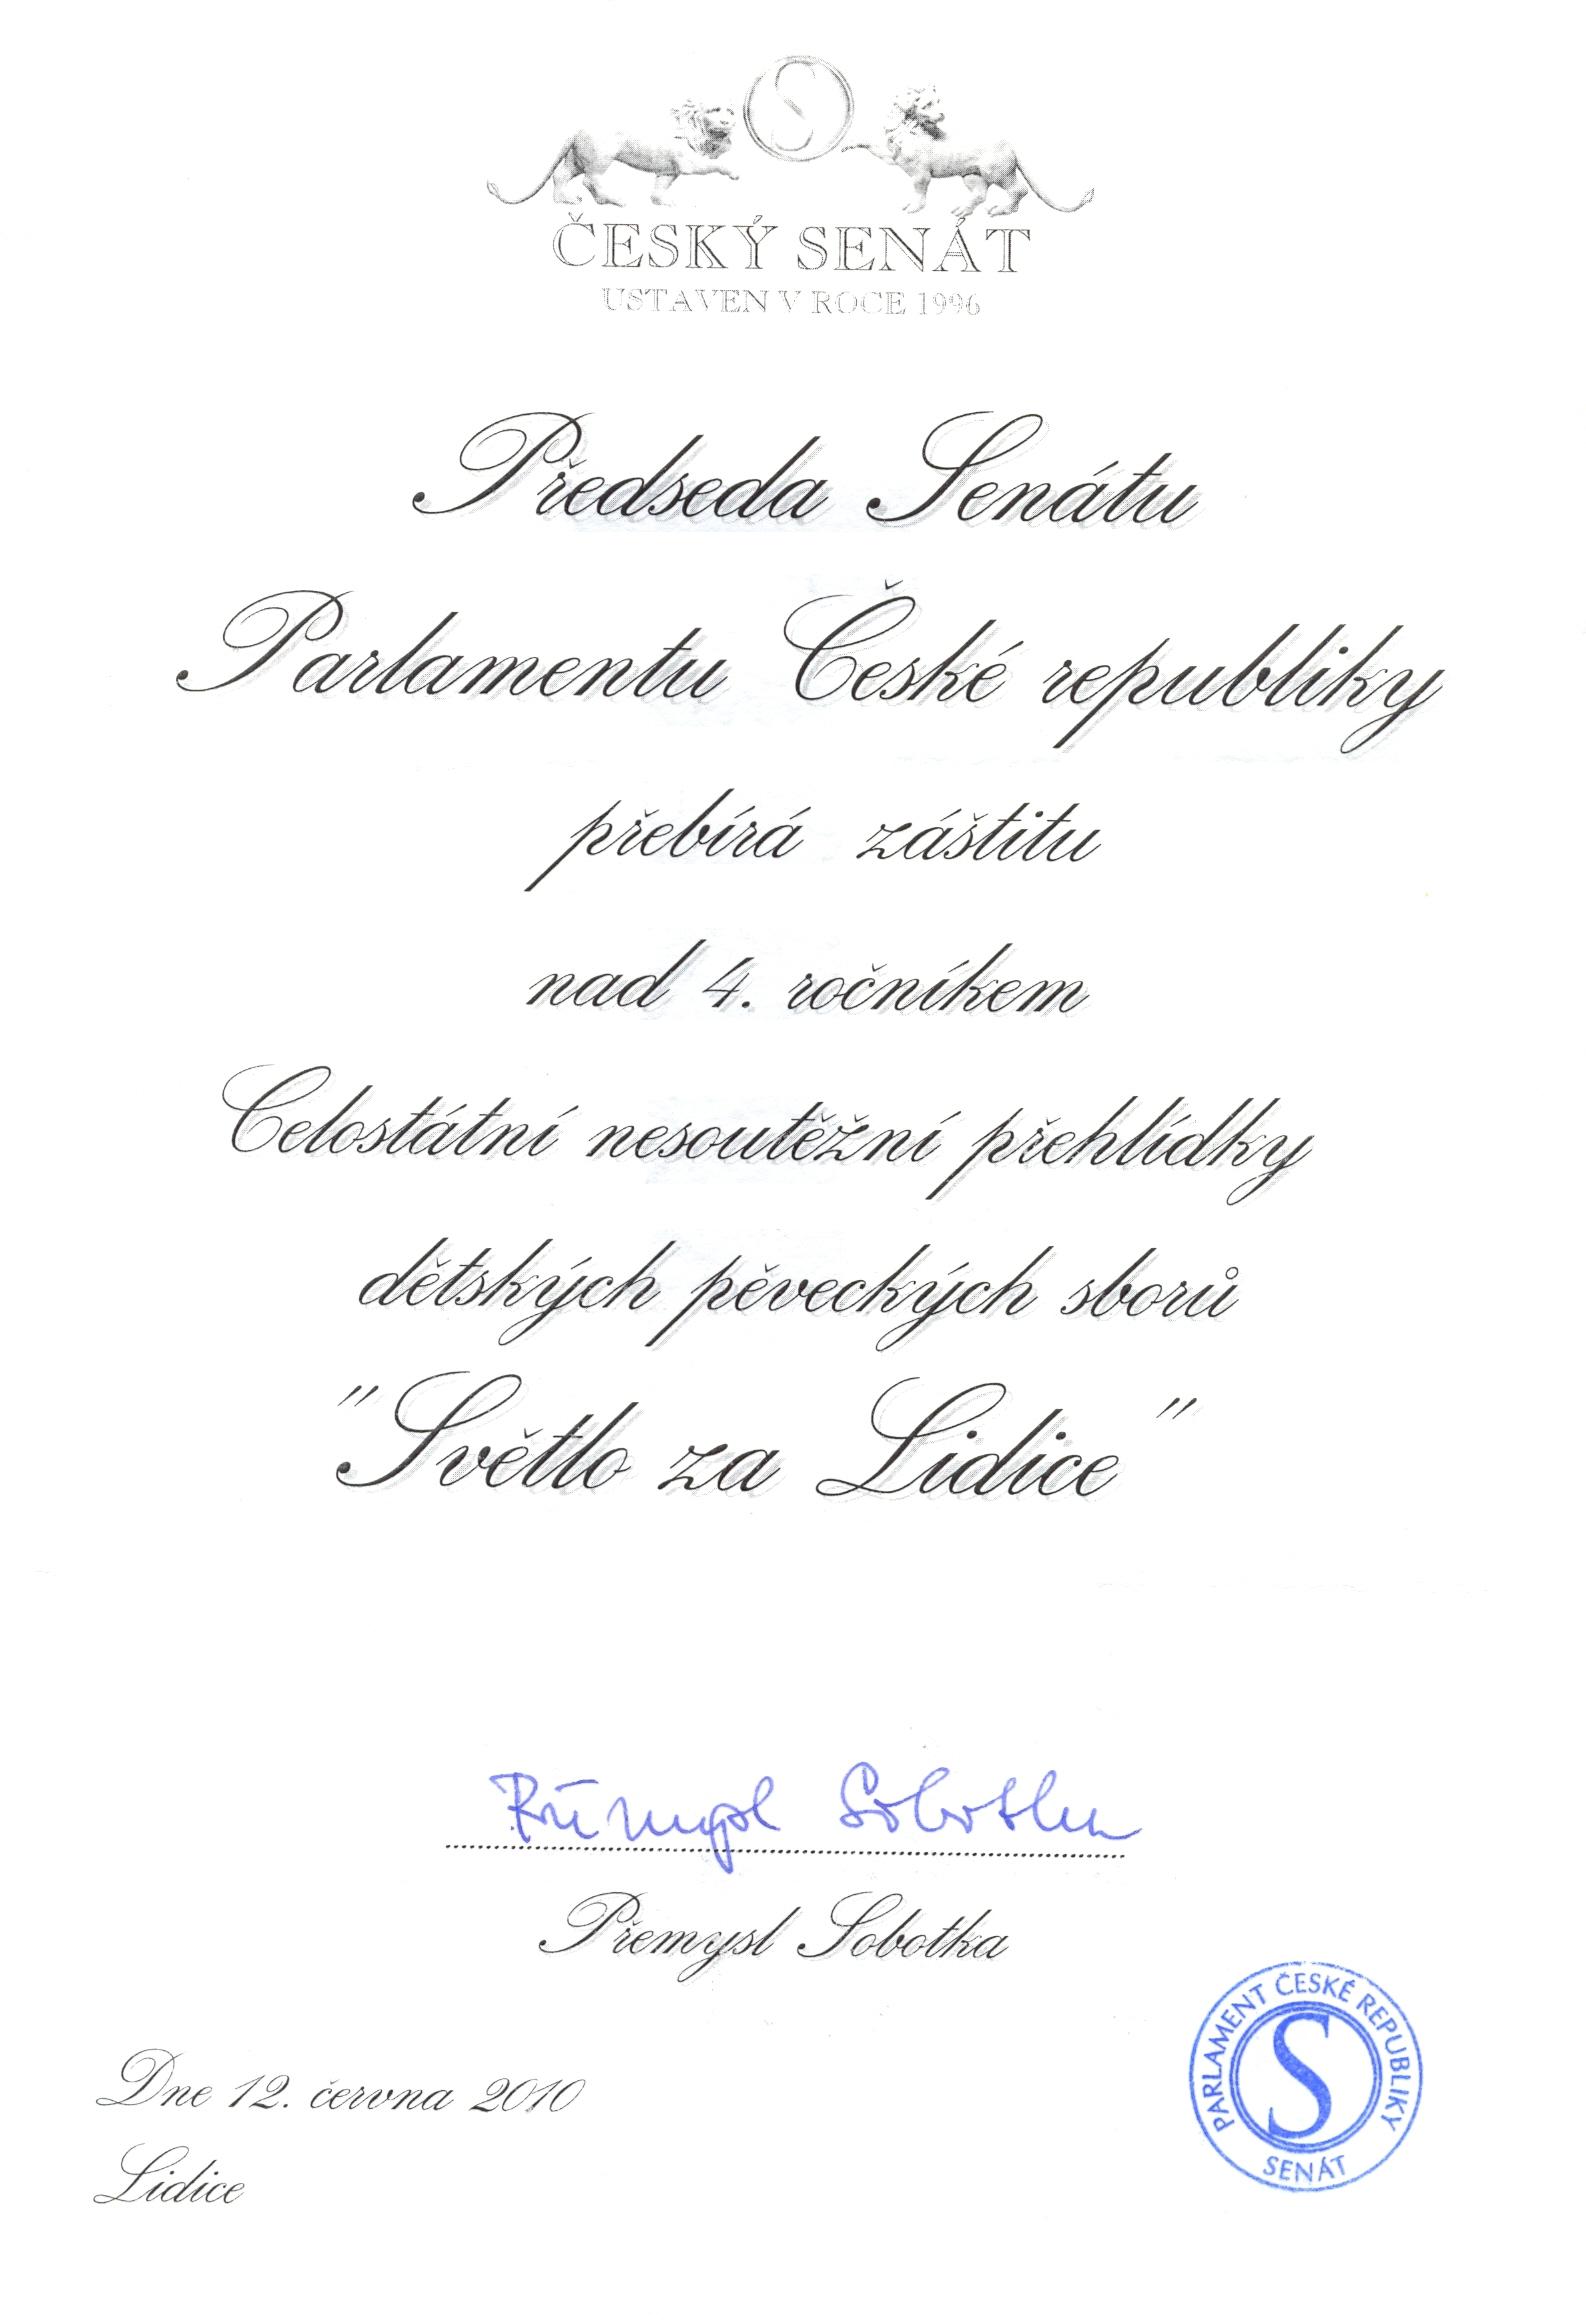 S
ČESKÝ SENÁT
USTAVEN V ROCE 1996
Předseda Senátu
Parlamentu České republiky
přebírá záštitu
nad 4. ročníkem
Celostátní nesoutěžní přehlídky
dětských pěveckých sborů
"Světlo za Lidice"
Přemysl Sobotka
Přemysl Sobotka
Dne 12. června 2010
Lidice
PARLAMENT ČESKÉ REPUBLIKY
S
SENÁT